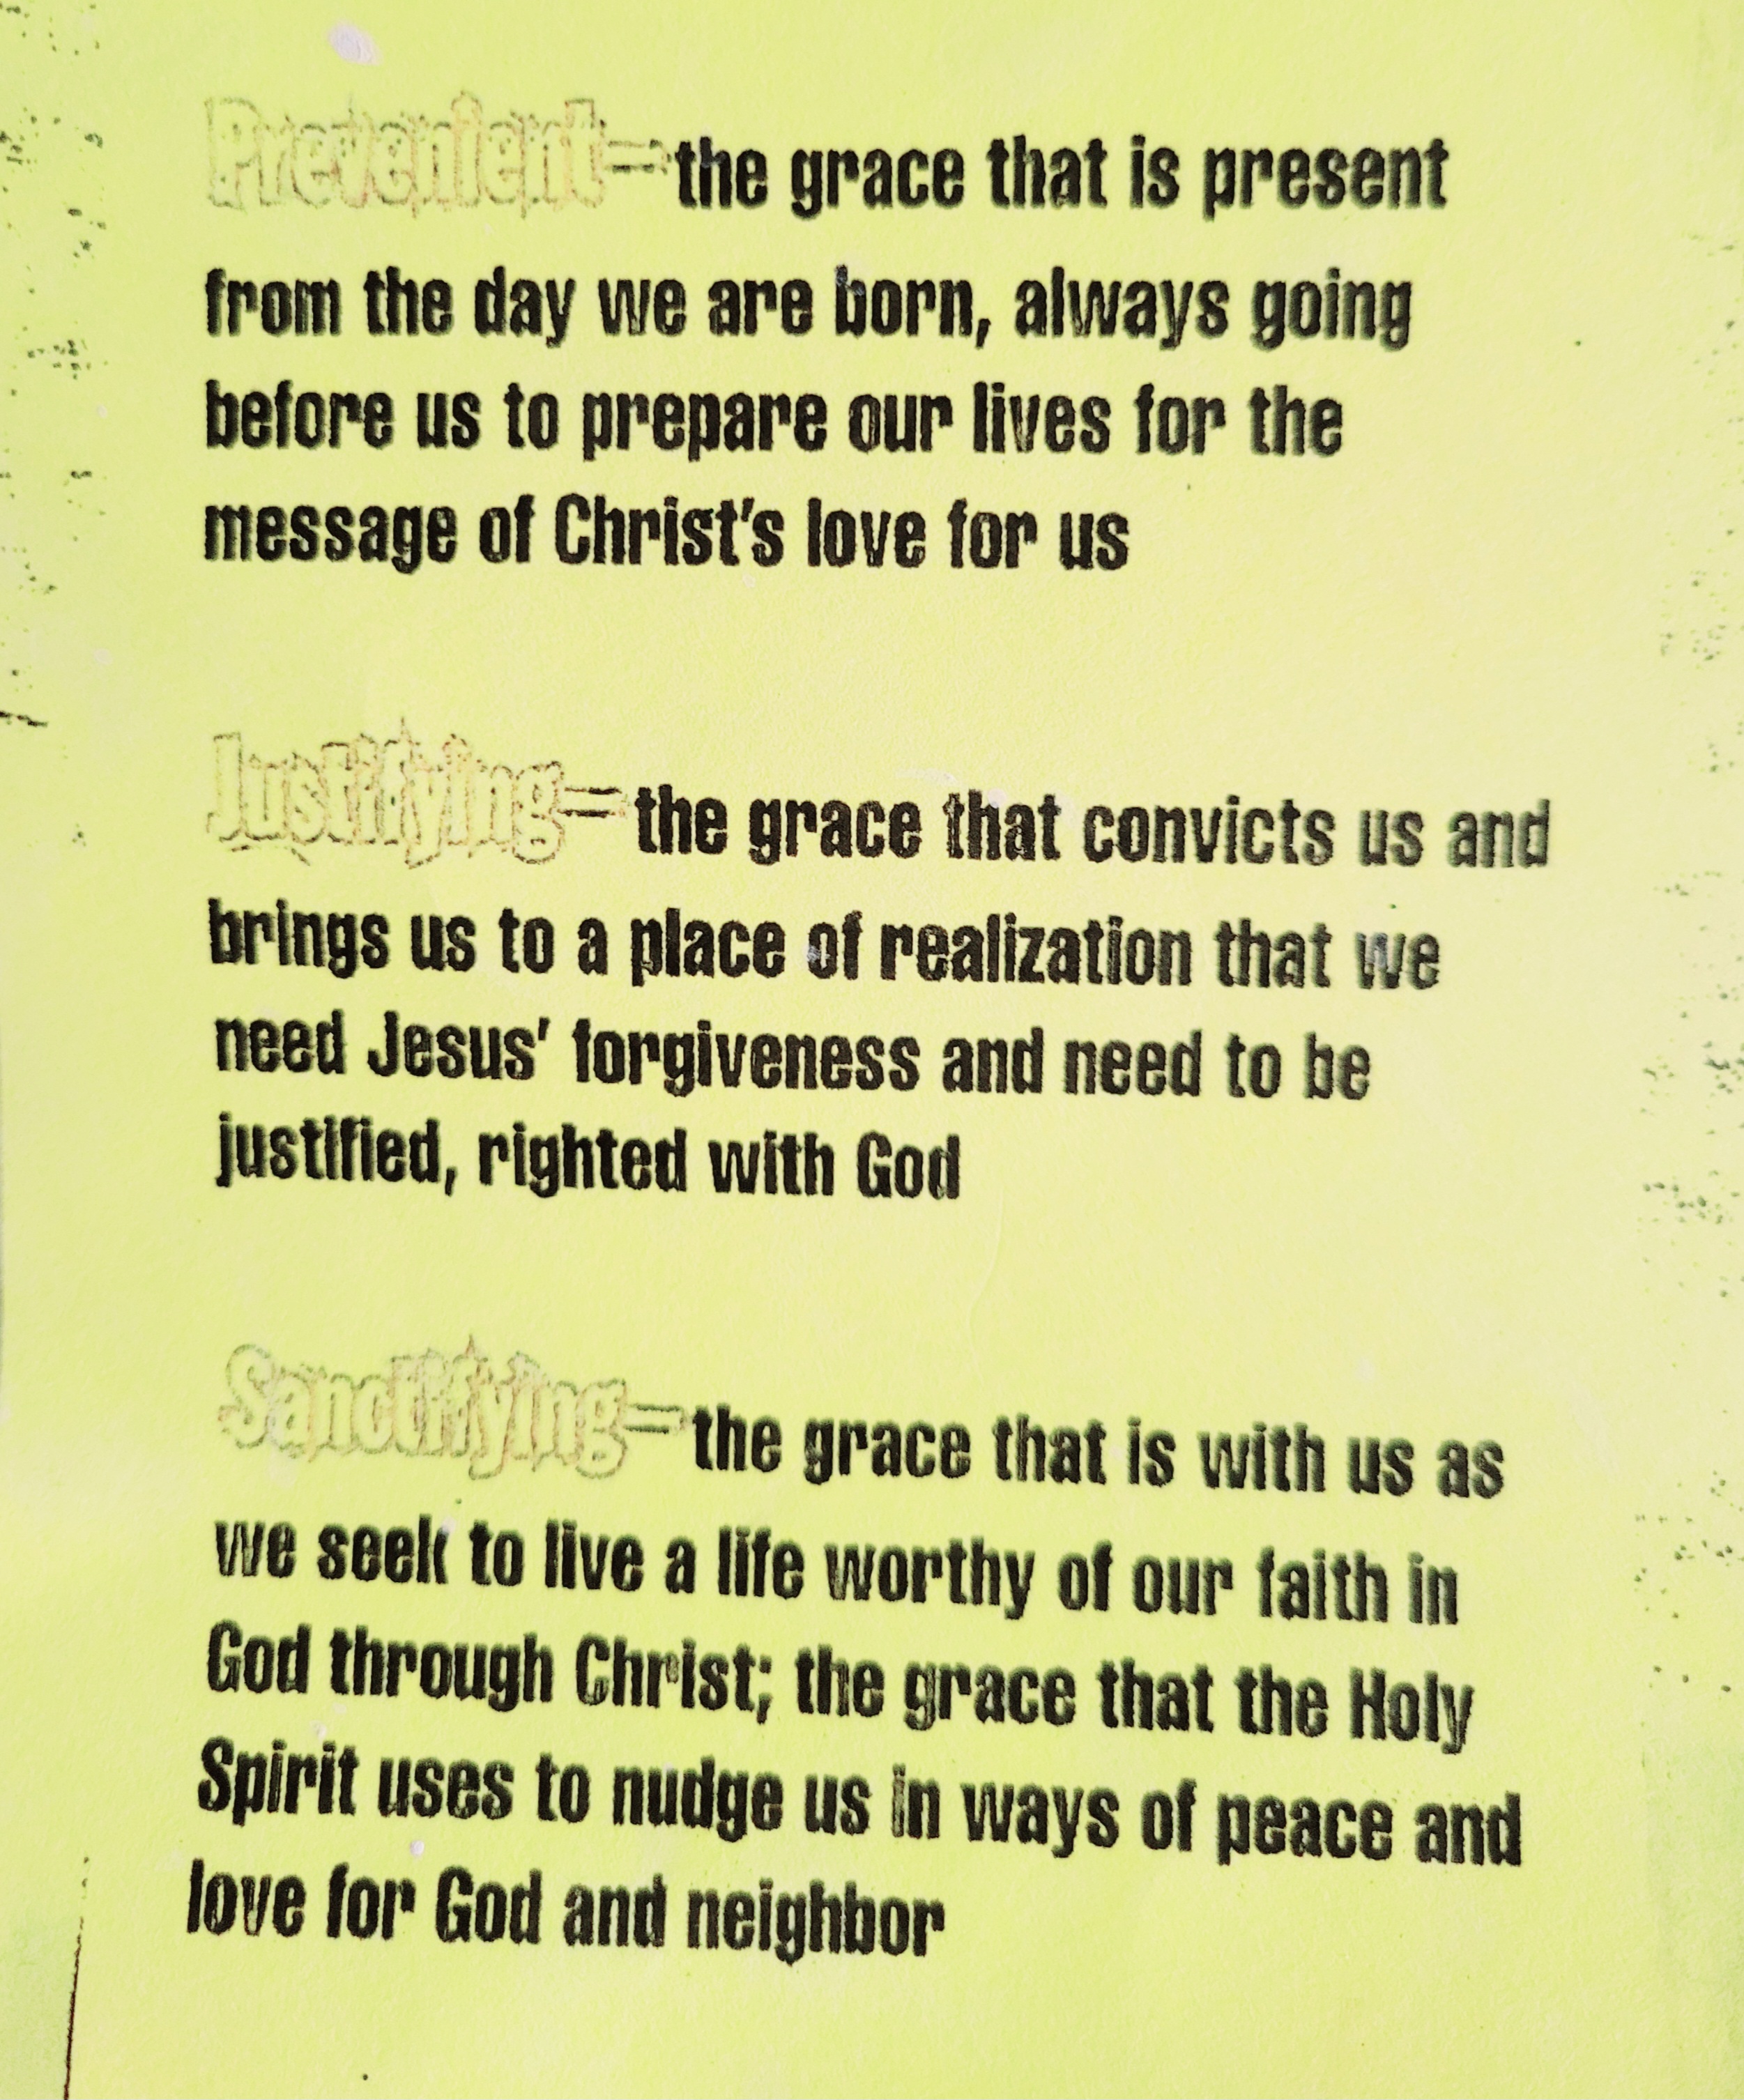 Prevenient—the grace that is present
from the day we are born, always going
before us to prepare our lives for the
message of Christ's love for us
Justifying—the grace that convicts us and
brings us to a place of realization that we
need Jesus' forgiveness and need to be
justified, righted with God
Sanctifying—the grace that is with us as
we seek to live a life worthy of our faith in
God through Christ; the grace that the Holy
Spirit uses to nudge us in ways of peace and
love for God and neighbor